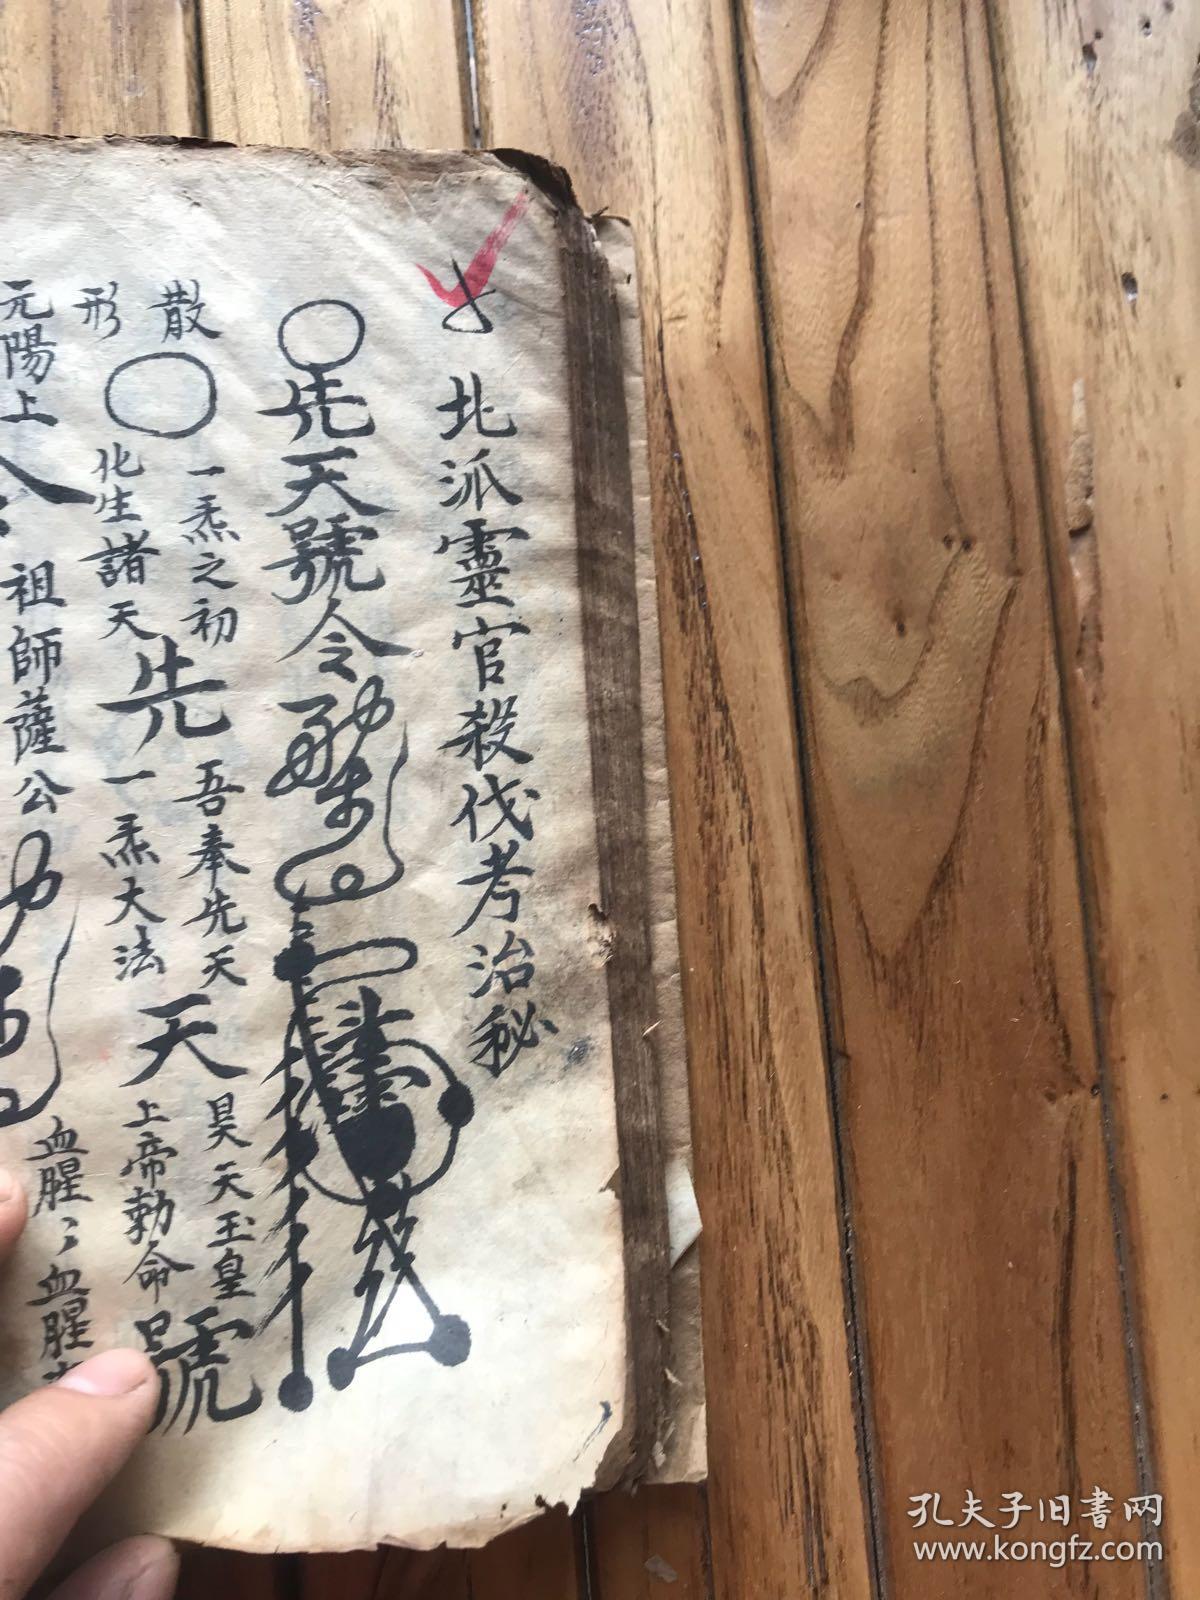 北派靈官殺伐考治秘
先天號令
散
形
一炁之初
化生諸天
先
吾奉先天
一炁大法
天
昊天玉皇
上帝勅命
號
元陽上
祖師薩公
血腥〻血腥
孔夫子旧书网
www.kongfz.com